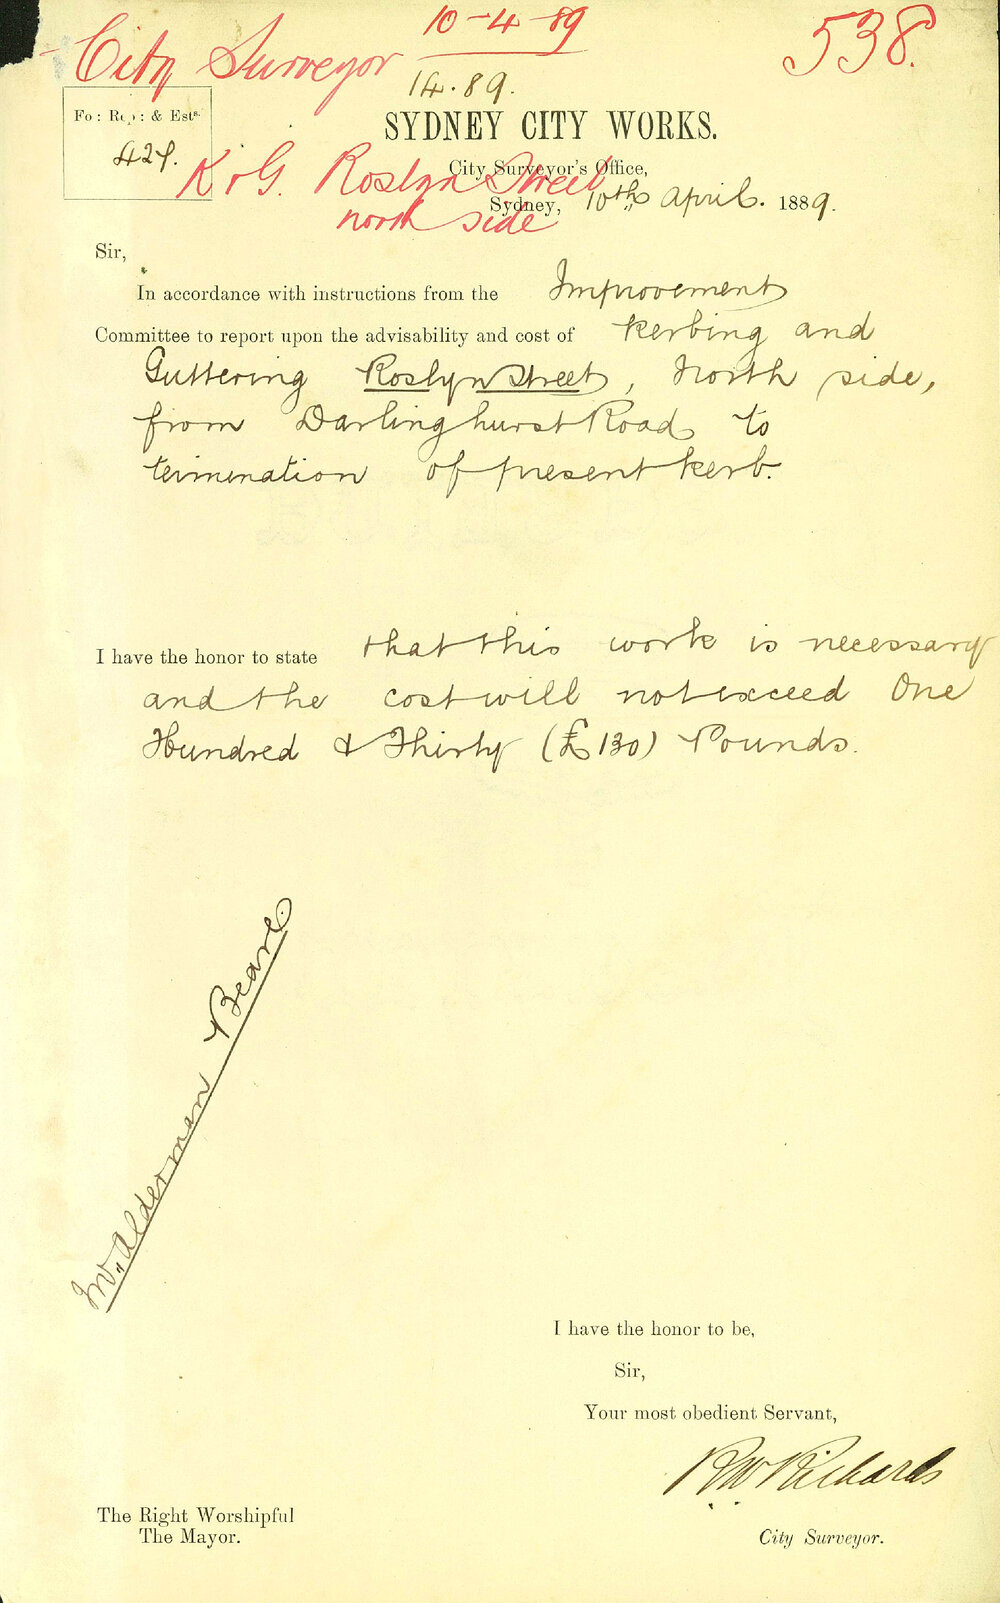 10-4-89
538.
City Surveyor
14.89.
Fo: Rep: & Ests.
SYDNEY CITY WORKS.
K & G. Roslyn Street
north side
City Surveyor's Office,
Sydney, 10th April. 1889.
Sir,
In accordance with instructions from the Improvement
Committee to report upon the advisability and cost of kerbing and
Guttering Roslyn Street, North side,
from Darlinghurst Road to
termination of present kerb.
I have the honor to state that this work is necessary
and the cost will not exceed One
Hundred & Thirty (£130) Pounds.
Mr. Alderman Beare.
I have the honor to be,
Sir,
Your most obedient Servant,
R W Richards
The Right Worshipful
The Mayor.
City Surveyor.